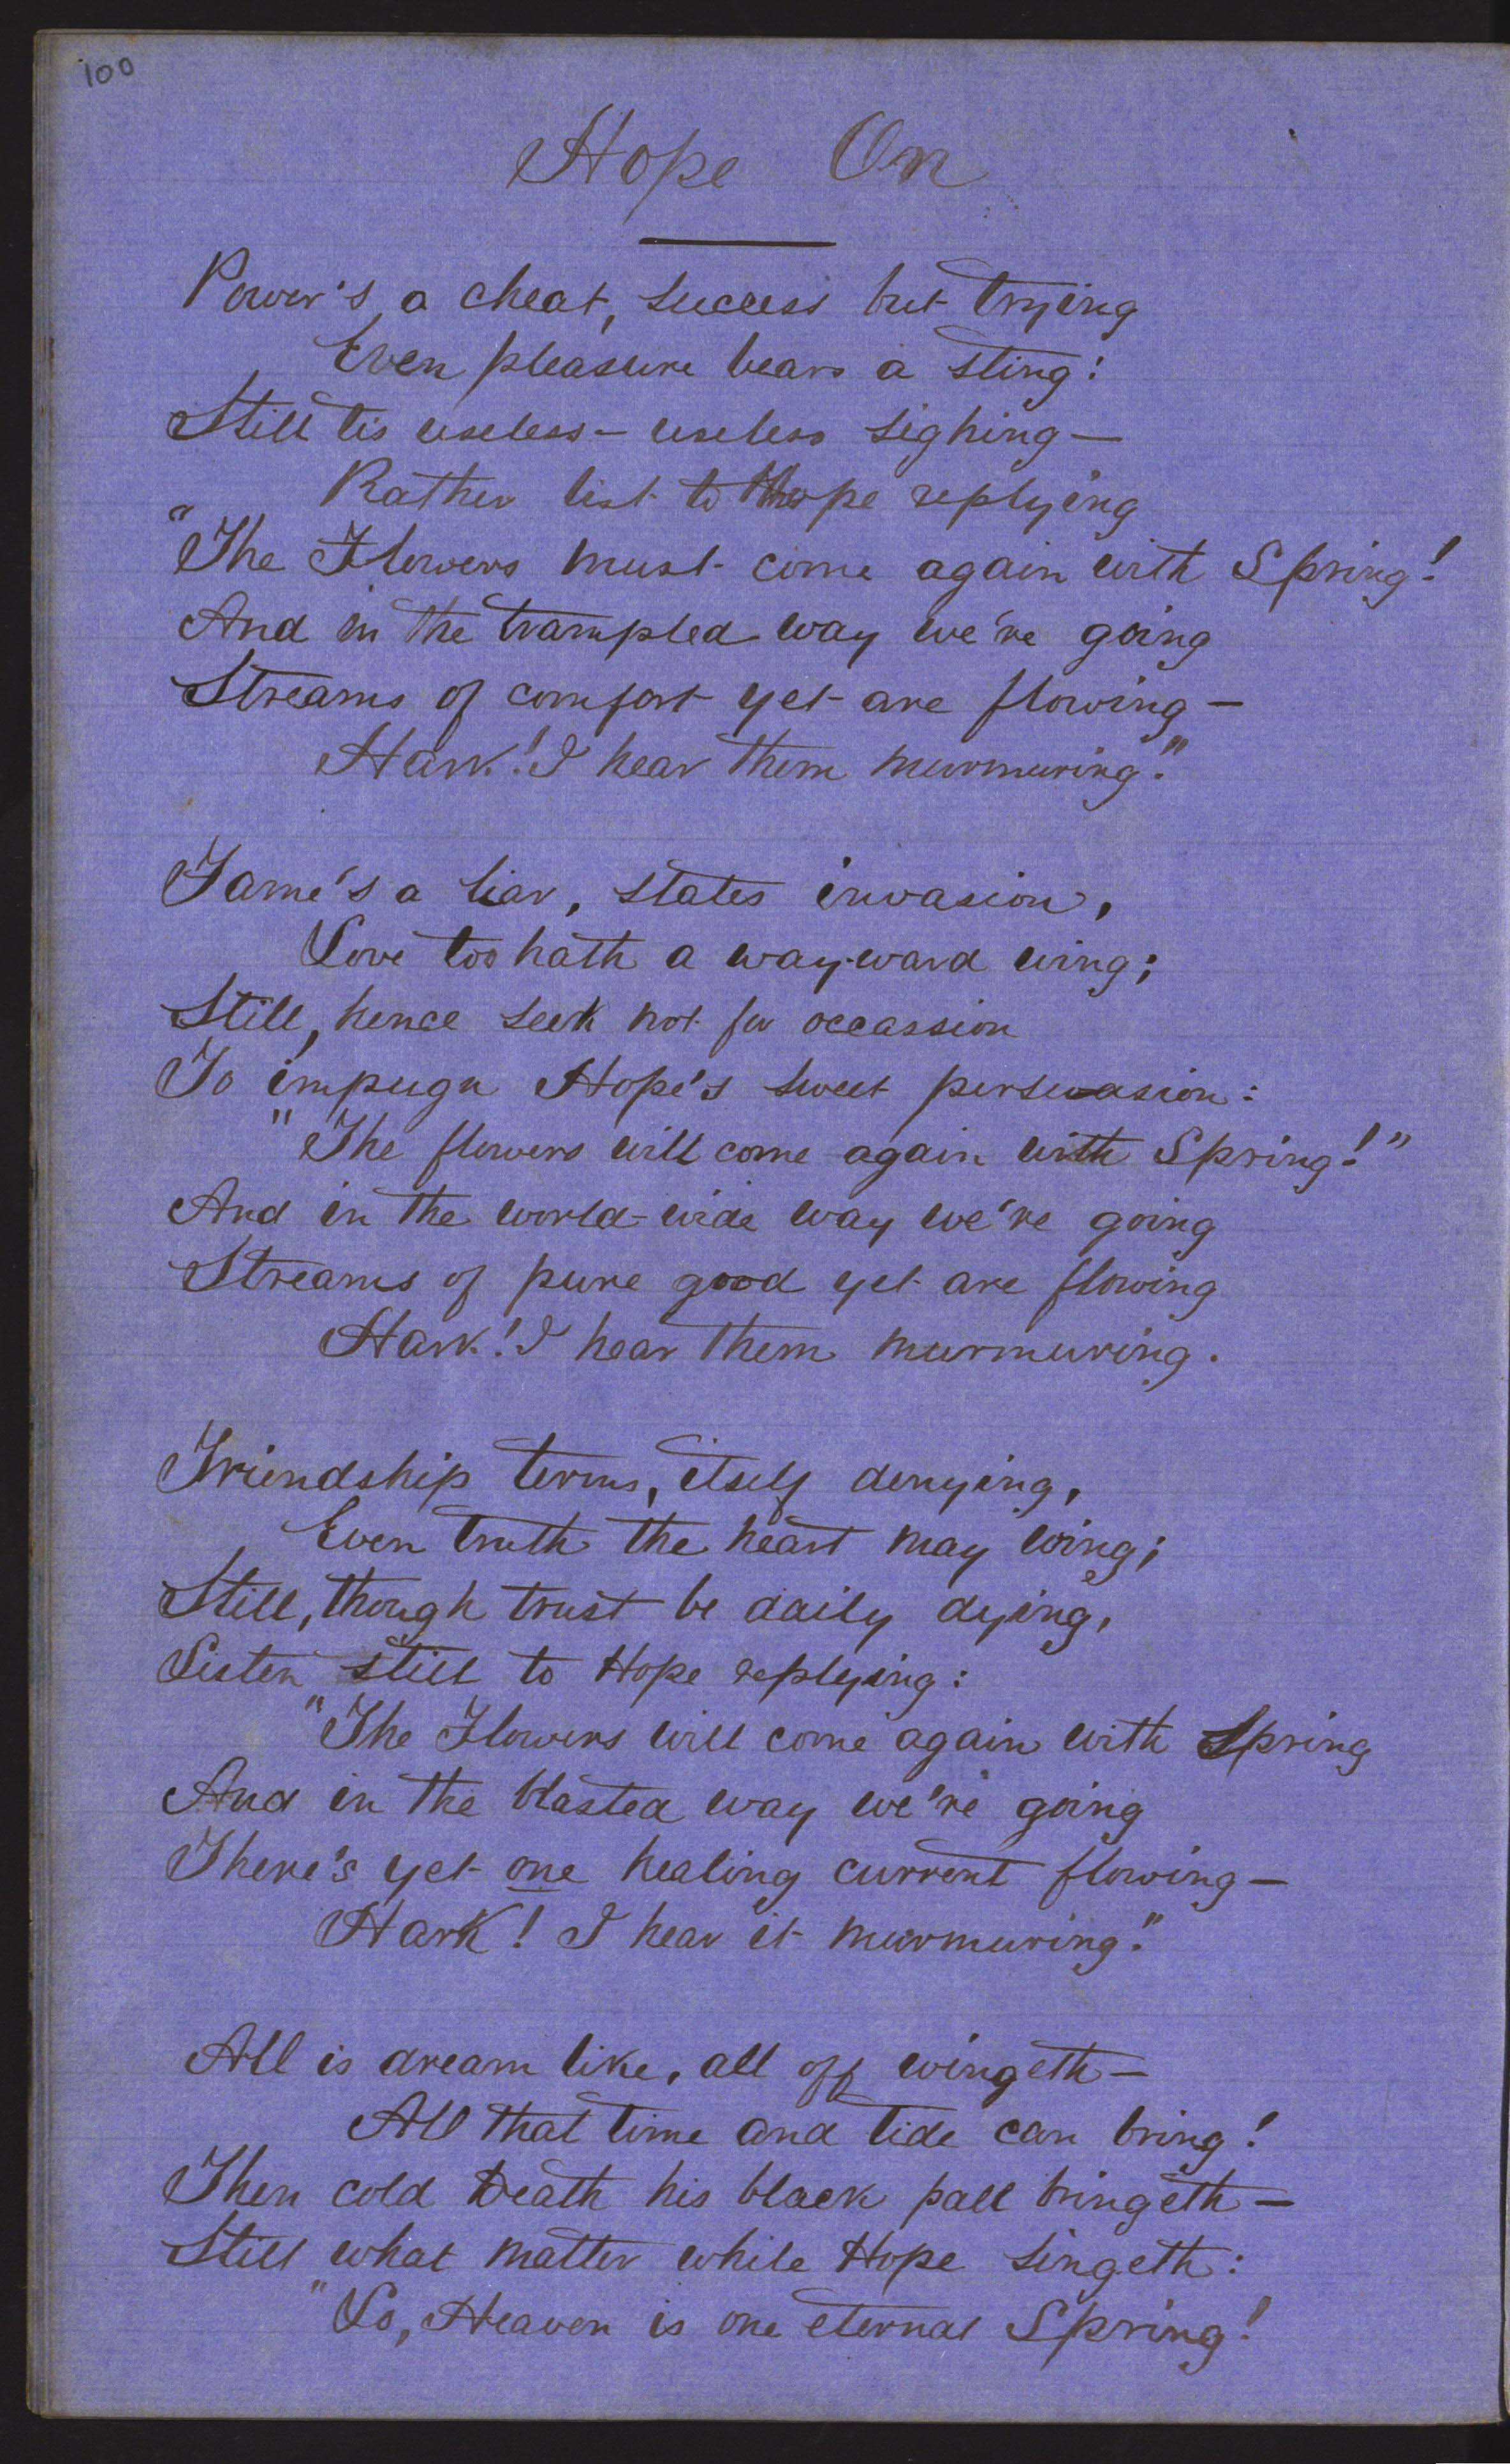 100
Hope On
Power's a cheat, success but trying
Even pleasure bears a sting:
Still tis useless - useless sighing —
Rather list to Hope replying
"The Flowers must come again with Spring!
And in the trampled way we're going
Streams of comfort yet are flowing —
Hark! I hear them murmuring."
Fame's a liar, states invasion,
Love too hath a way-ward wing;
Still, hence seek not for occassion
To impugn Hope's sweet persuasion:
"The flowers will come again with Spring!"
And in the world-wide way we're going
Streams of pure good yet are flowing
Hark! I hear them murmuring.
Friendship terms, itself denying,
Even truth the heart may wing;
Still, though trust be daily dying,
Listen still to Hope replying:
"The Flowers will come again with Spring
And in the blasted way we're going
There's yet one healing current flowing —
Hark! I hear it murmuring."
All is dream like, all off wingeth —
All that time and tide can bring!
Then cold Death his black pall bringeth —
Still what matter while Hope singeth:
"Lo, Heaven is one eternal Spring!